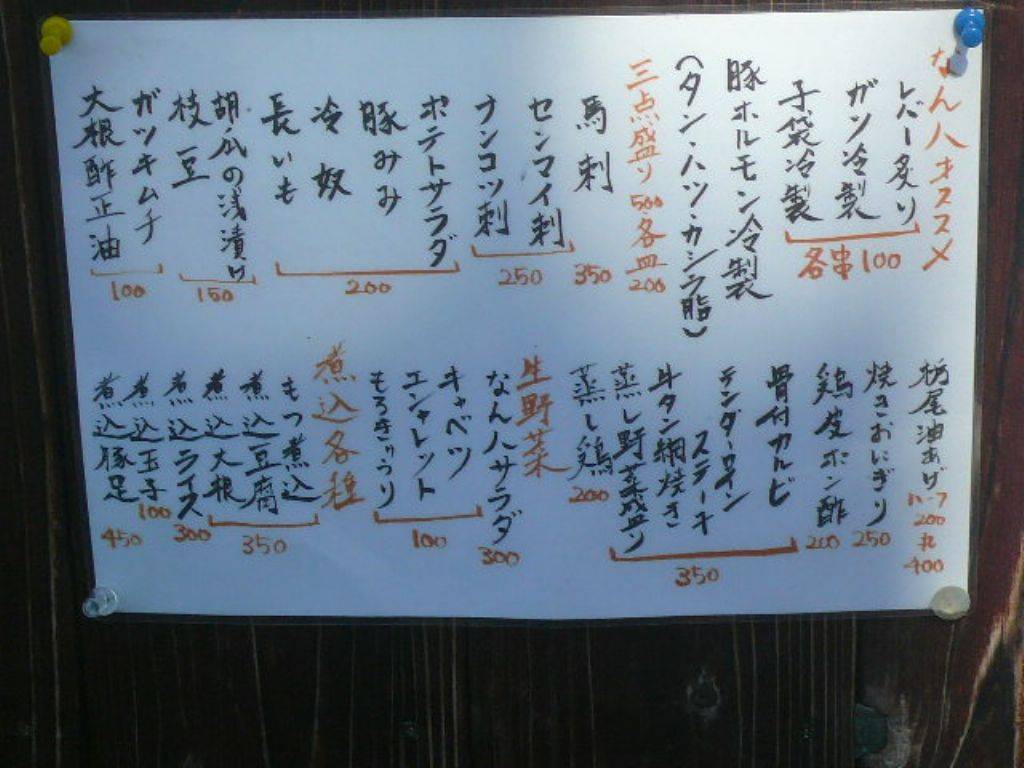 なん八オススメ
レバー炙り
ガツ冷製
子袋冷製
各串100
豚ホルモン冷製
(タン・ハツ・カシラ脂)
三点盛り500各皿200
馬刺
350
センマイ刺
ナンコツ刺
250
ポテトサラダ
豚みみ
冷奴
長いも
200
胡瓜の浅漬け
枝豆
150
ガツキムチ
大根酢正油
100
栃尾油あげ
ハーフ
200
丸
400
焼きおにぎり
250
鶏皮ポン酢
200
骨付カルビ
テンダーロイン
ステーキ
牛タン網焼き
蒸し野菜盛り
350
蒸し鶏
200
生野菜
なん八サラダ
300
キャベツ
エシャレット
もろきゅうり
100
煮込各種
もつ煮込
煮込豆腐
煮込大根
350
煮込ライス
300
煮込玉子
100
煮込豚足
450